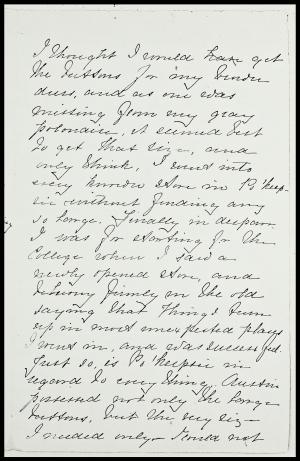 I thought I would have get
the buttons for my
dress, and as one was
missing from my gray
polonaise, it seemed best
to get that size, and
only think, I went into
every known store in P. keep-
sie without finding any
so large. Finally in despair
I was for starting for the
College when I said a
newly opened store, and
believing firmly in the old
saying that things turn
up in most unexpected places
I went in, and was successful.
Just so, is Po'keepsie in
regard to everything. Austin
possessed not only the large
buttons, but the very size
I needed only I could not